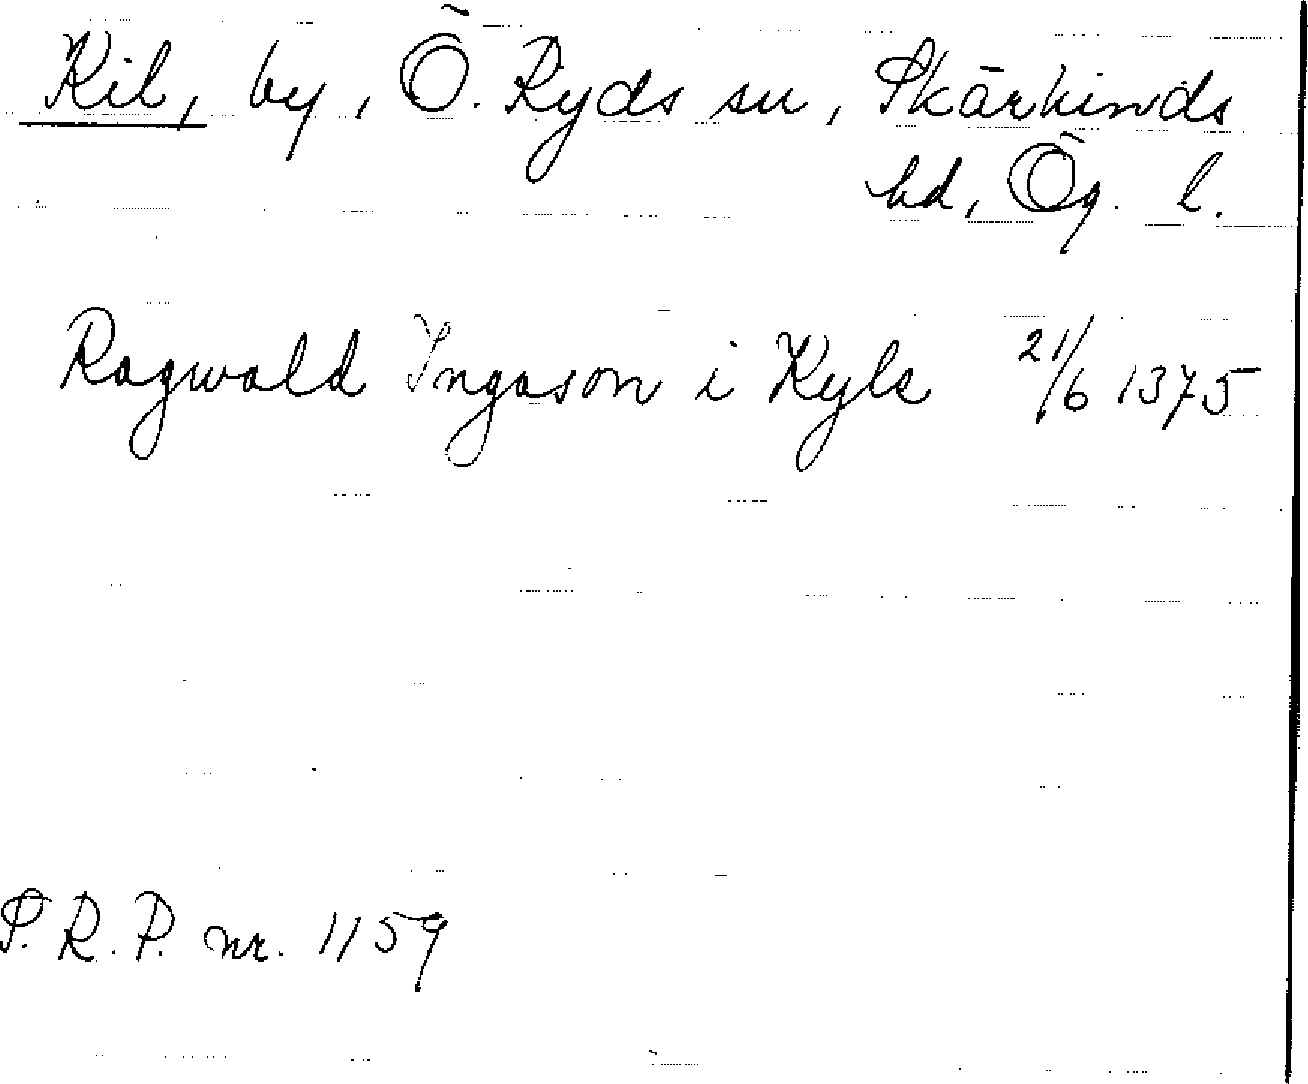 Kil, by, Ö. Ryds sn, Skärkinds
hd, Ög. l.
Ragwald Ingason i Kyle 21/6 1375
S.R.P. nr. 1159